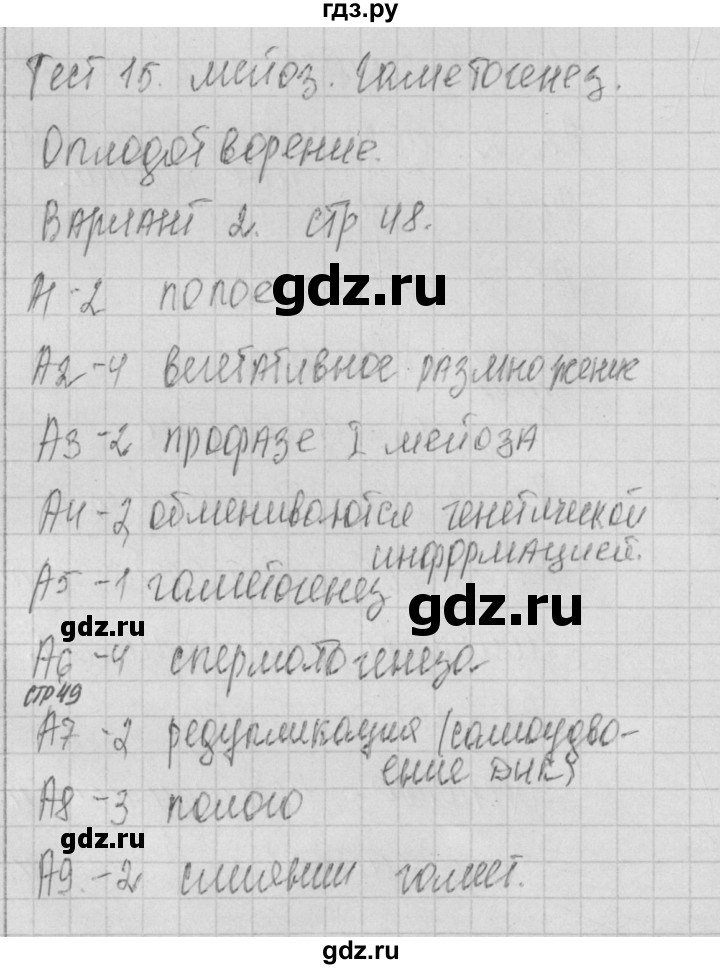 гдз.ру
Тест 15. мейоз. Гаметогенез.
Оплодотворение.
Вариант 2. стр 48.
gdz.ru
А2-4 вегетативное размножение
А3-2 профазе I мейоза
А4-2 обмениваются генетической
информацией.
А5-1 гаметогенез
gdz.ru
gdz.ru
А6-4 сперматогенеза
стр 49
А7-2 редупликация (самоудво-
ение ДНК)
А8-3 полого
gdz.ru
А9-2 слиянии гамет.
gdz.ru